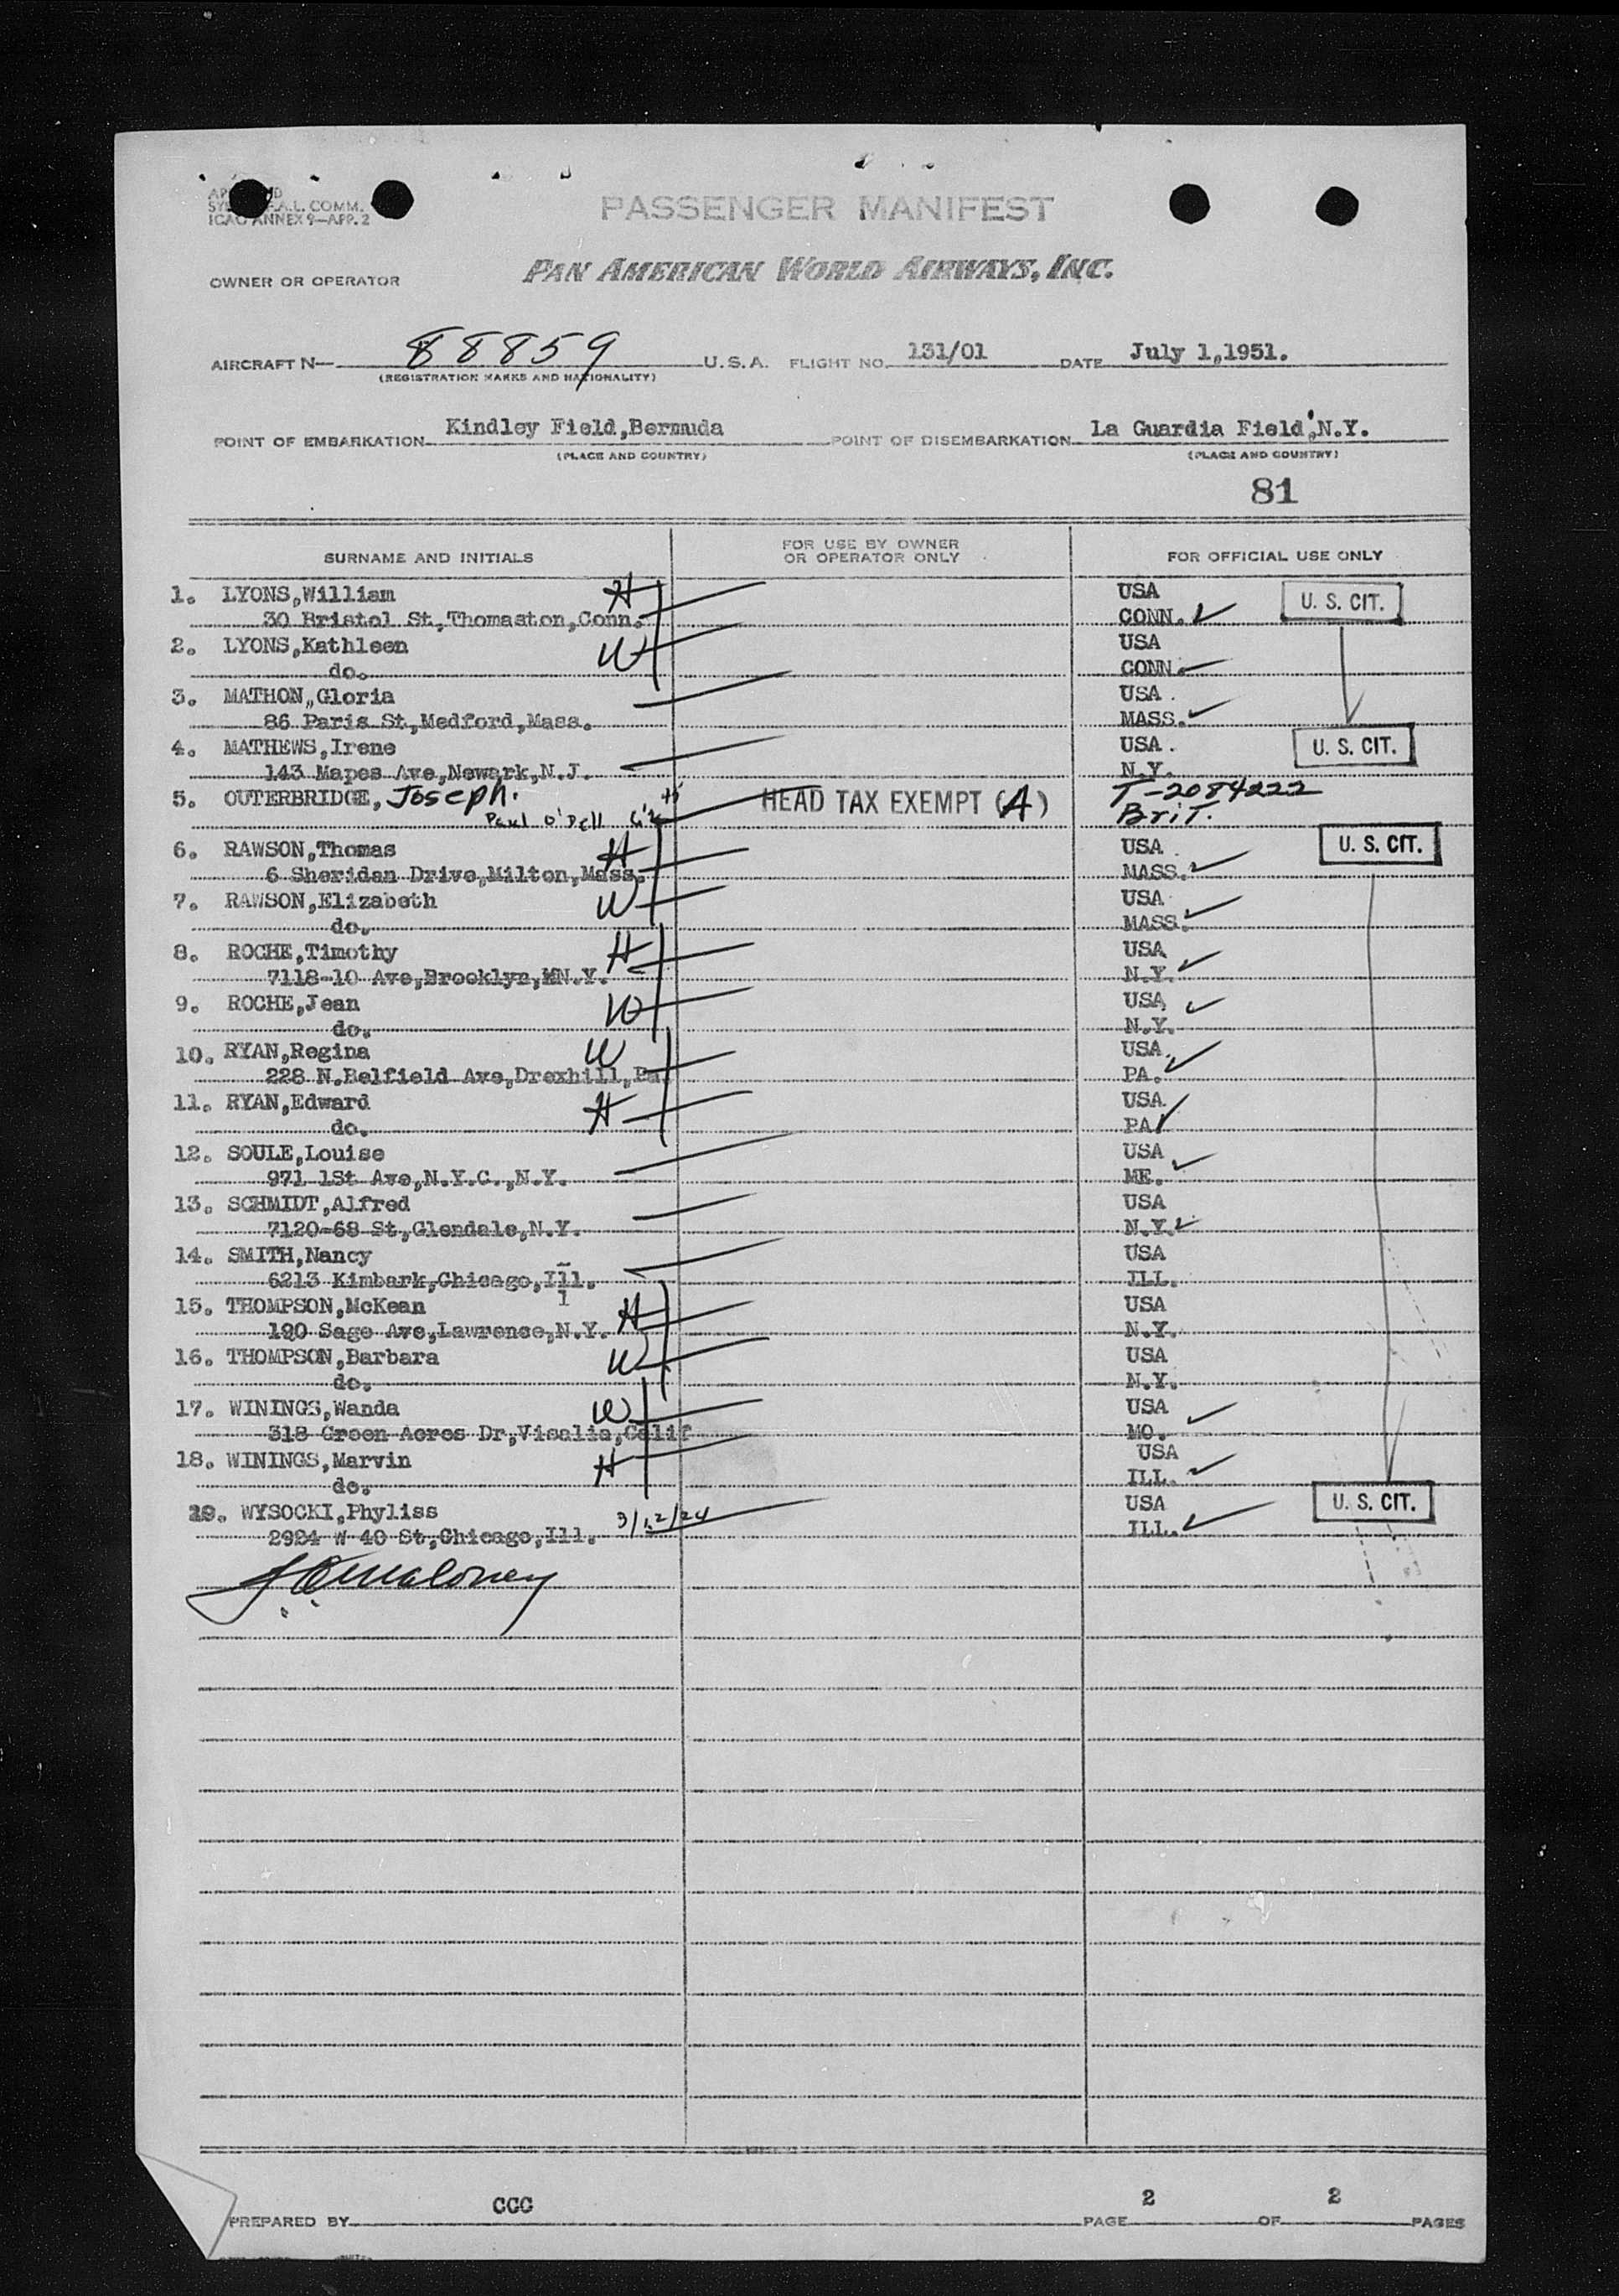 ICAO ANNEX 9—APP. 2
PASSENGER MANIFEST
OWNER OR OPERATOR PAN AMERICAN WORLD AIRWAYS, INC.
AIRCRAFT N— 88859 U.S.A. FLIGHT NO. 131/01 DATE July 1,1951.
(REGISTRATION MARKS AND NATIONALITY)
POINT OF EMBARKATION Kindley Field,Bermuda POINT OF DISEMBARKATION La Guardia Field,N.Y.
(PLACE AND COUNTRY) (PLACE AND COUNTRY)
81
SURNAME AND INITIALS FOR USE BY OWNER OR OPERATOR ONLY FOR OFFICIAL USE ONLY
1. LYONS,William H USA U. S. CIT.
30 Bristol St,Thomaston,Conn. CONN.
2. LYONS,Kathleen W USA
do. CONN.
3. MATHON,Gloria USA
86 Paris St,Medford,Mass. MASS.
4. MATHEWS,Irene USA U. S. CIT.
143 Mapes Ave,Newark,N.J. N.Y.
5. OUTERBRIDGE, Joseph. HEAD TAX EXEMPT (A) T-2084222
Paul O'Dell Brit.
6. RAWSON,Thomas H USA U. S. CIT.
6 Sheridan Drive,Milton,Mass. MASS.
7. RAWSON,Elizabeth W USA
do. MASS.
8. ROCHE,Timothy H USA
7118-10 Ave,Brooklyn,MN.Y. N.Y.
9. ROCHE,Jean W USA
do. N.Y.
10. RYAN,Regina W USA
228 N.Belfield Ave,Drexhill,Pa. PA.
11. RYAN,Edward H USA
do. PA
12. SOULE,Louise USA
971 1St Ave,N.Y.C.,N.Y. ME.
13. SCHMIDT,Alfred USA
7120-68 St,Glendale,N.Y. N.Y.
14. SMITH,Nancy USA
6213 Kimbark,Chicago,Ill. ILL.
15. THOMPSON,McKean H USA
190 Sage Ave,Lawrence,N.Y. N.Y.
16. THOMPSON,Barbara W USA
do. N.Y.
17. WININGS,Wanda W USA
318 Green Acres Dr,Visalia,Calif MO.
18. WININGS,Marvin H USA
do. ILL.
19. WYSOCKI,Phyliss 3/12/24 USA U. S. CIT.
2924 W 40 St,Chicago,Ill. ILL.
PREPARED BY CCC PAGE 2 OF 2 PAGES